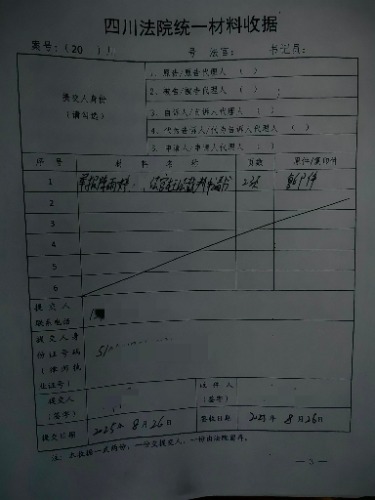 四川法院统一材料收据
案号：（20 ） 号 法官： 书记员：
提交人身份
（请勾选）
1、原告/原告代理人（ ）
2、被告/被告代理人（ ）
3、自诉人/自诉人代理人（ ）
4、代为告诉人/代为告诉人代理人（ ）
5、申请人/申请人代理人（ ）
序号 材料名称 页数
1
2
3
4
5
6
提交人
联系电话 1
提交人身
份证号码
（律师执
业证号） 51
提交人
（签字）
收件人
（签字）
提交日期 2025年8月26日 签收日期 2025年8月26日
注：本收据一式两份，一份交提交人，一份由法院留存。
— 3 —